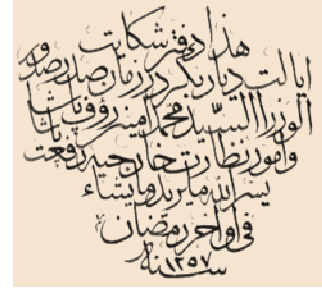 هذا دفتر شكايت
ايالت ديار بكر در زمان صدر صدور
الوزرا السيد محمد امين رؤف پاشا
وامور نظارت خارجيه رفعت پاشا
يسر الله ما يريد وما يشاء
فى اواخر رمضان
سنة ١٢٥٧